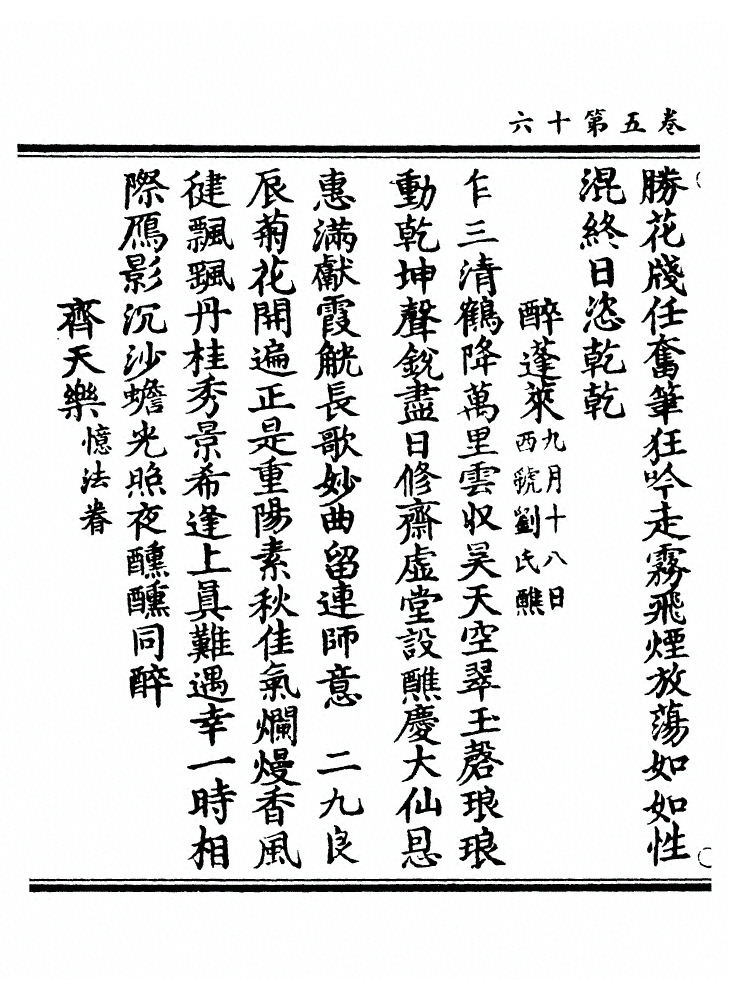 卷五第十六
勝花牋任奮筆狂吟走霧飛煙放蕩如如性
混終日恣乾乾
醉蓬萊九月十八日西號劉氏醮
乍三清鶴降萬里雲収昊天空翠玉磬琅琅
動乾坤聲銳盡日修齋虛堂設醮慶大仙恩
惠滿獻霞觥長歌妙曲留連師意　二九良
辰菊花開遍正是重陽素秋佳氣爛熳香風
徤飄颻丹桂秀景希逢上眞難遇幸一時相
際鴈影沉沙蟾光照夜醺醺同醉
齊天樂憶法眷